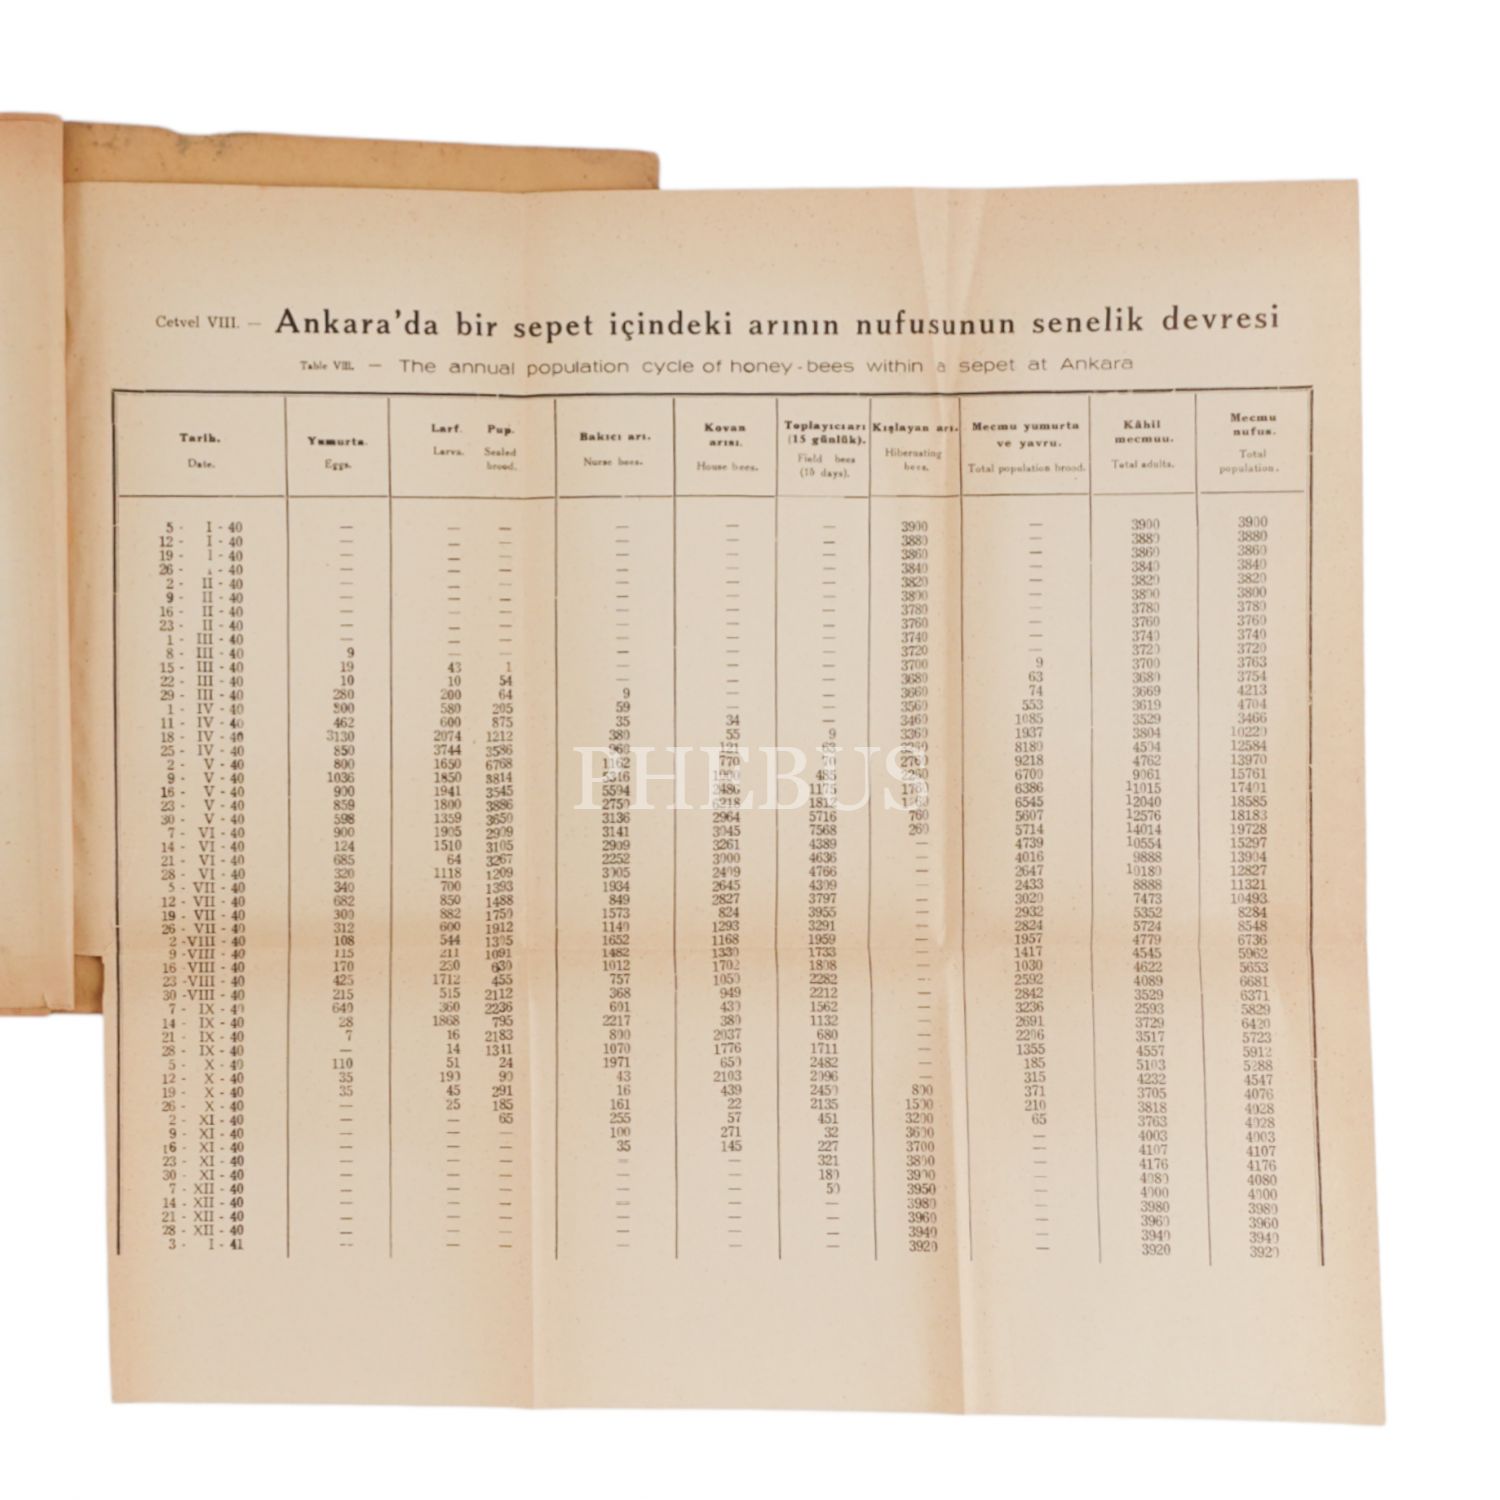 Cetvel VIII. — Ankara'da bir sepet içindeki arının nufusunun senelik devresi
Table VIII. — The annual population cycle of honey-bees within a sepet at Ankara
Tarih. Yumurta. Larf. Pup. Bakıcı arı. Kovan arısı. Toplayıcı arı (15 günlük). Kışlayan arı. Mecmu yumurta ve yavru. Kâhil mecmuu. Mecmu nufus.
Date. Eggs. Larva. Sealed brood. Nurse bees. House bees. Field bees (15 days). Hibernating bees. Total population brood. Total adults. Total population.
5 - I - 40 — — — — — — 3900 — 3900 3900
12 - I - 40 — — — — — — 3880 — 3880 3880
19 - I - 40 — — — — — — 3860 — 3860 3860
26 - I - 40 — — — — — — 3840 — 3840 3840
2 - II - 40 — — — — — — 3820 — 3820 3820
9 - II - 40 — — — — — — 3800 — 3800 3800
16 - II - 40 — — — — — — 3780 — 3780 3780
23 - II - 40 — — — — — — 3760 — 3760 3760
1 - III - 40 — — — — — — 3740 — 3740 3740
8 - III - 40 9 — — — — — 3720 — 3720 3720
15 - III - 40 19 43 1 — — — 3700 9 3700 3763
22 - III - 40 10 10 54 — — — 3680 63 3680 3754
29 - III - 40 280 200 64 9 — — 3660 74 3669 4213
1 - IV - 40 300 580 205 59 — — 3560 553 3619 4704
11 - IV - 40 462 600 875 35 34 — 3460 1085 3529 3466
18 - IV - 40 3130 2074 1212 380 55 9 3360 1937 3804 10220
25 - IV - 40 850 3744 3586 960 121 63 3260 8180 4504 12584
2 - V - 40 800 1650 6768 1162 770 70 2760 9218 4762 13970
9 - V - 40 1036 1850 3814 5316 1000 485 2260 6700 9061 15761
16 - V - 40 900 1941 3545 5594 2486 1175 1760 6386 11015 17401
23 - V - 40 859 1800 3886 2750 6218 1812 1260 6545 12040 18585
30 - V - 40 598 1359 3650 3136 2964 5716 760 5607 12576 18183
7 - VI - 40 900 1905 2909 3141 3045 7568 260 5714 14014 19728
14 - VI - 40 124 1510 3105 2909 3261 4389 — 4739 10554 15297
21 - VI - 40 685 64 3267 2252 3000 4636 — 4016 9888 13904
28 - VI - 40 320 1118 1209 3005 2409 4766 — 2647 10180 12827
5 - VII - 40 340 700 1393 1934 2645 4309 — 2433 8888 11321
12 - VII - 40 682 850 1488 849 2827 3797 — 3020 7473 10493
19 - VII - 40 300 882 1750 1573 824 3955 — 2932 5352 8284
26 - VII - 40 312 600 1912 1140 1293 3291 — 2824 5724 8548
2 - VIII - 40 108 544 1305 1652 1168 1959 — 1957 4779 6736
9 - VIII - 40 115 211 1091 1482 1330 1733 — 1417 4545 5962
16 - VIII - 40 170 230 630 1012 1702 1808 — 1030 4622 5653
23 - VIII - 40 425 1712 455 757 1050 2282 — 2592 4089 6681
30 - VIII - 40 215 515 2112 368 949 2212 — 2842 3529 6371
7 - IX - 40 640 360 2236 601 430 1562 — 3236 2593 5829
14 - IX - 40 28 1868 795 2217 380 1132 — 2691 3729 6420
21 - IX - 40 7 16 2183 800 2037 680 — 2206 3517 5723
28 - IX - 40 — 14 1341 1070 1776 1711 — 1355 4557 5912
5 - X - 40 110 51 24 1971 650 2482 — 185 5103 5288
12 - X - 40 35 190 90 43 2103 2096 — 315 4232 4547
19 - X - 40 35 45 291 16 439 2450 800 371 3705 4076
26 - X - 40 — 25 185 161 22 2135 1500 210 3818 4028
2 - XI - 40 — — 65 255 57 451 3200 65 3763 4028
9 - XI - 40 — — — 100 271 32 3600 — 4003 4003
16 - XI - 40 — — — 35 145 227 3700 — 4107 4107
23 - XI - 40 — — — — — 321 3800 — 4176 4176
30 - XI - 40 — — — — — 180 3900 — 4080 4080
7 - XII - 40 — — — — — 50 3950 — 4000 4000
14 - XII - 40 — — — — — — 3980 — 3980 3980
21 - XII - 40 — — — — — — 3960 — 3960 3960
28 - XII - 40 — — — — — — 3940 — 3940 3940
3 - I - 41 — — — — — — 3920 — 3920 3920
PHEBUS